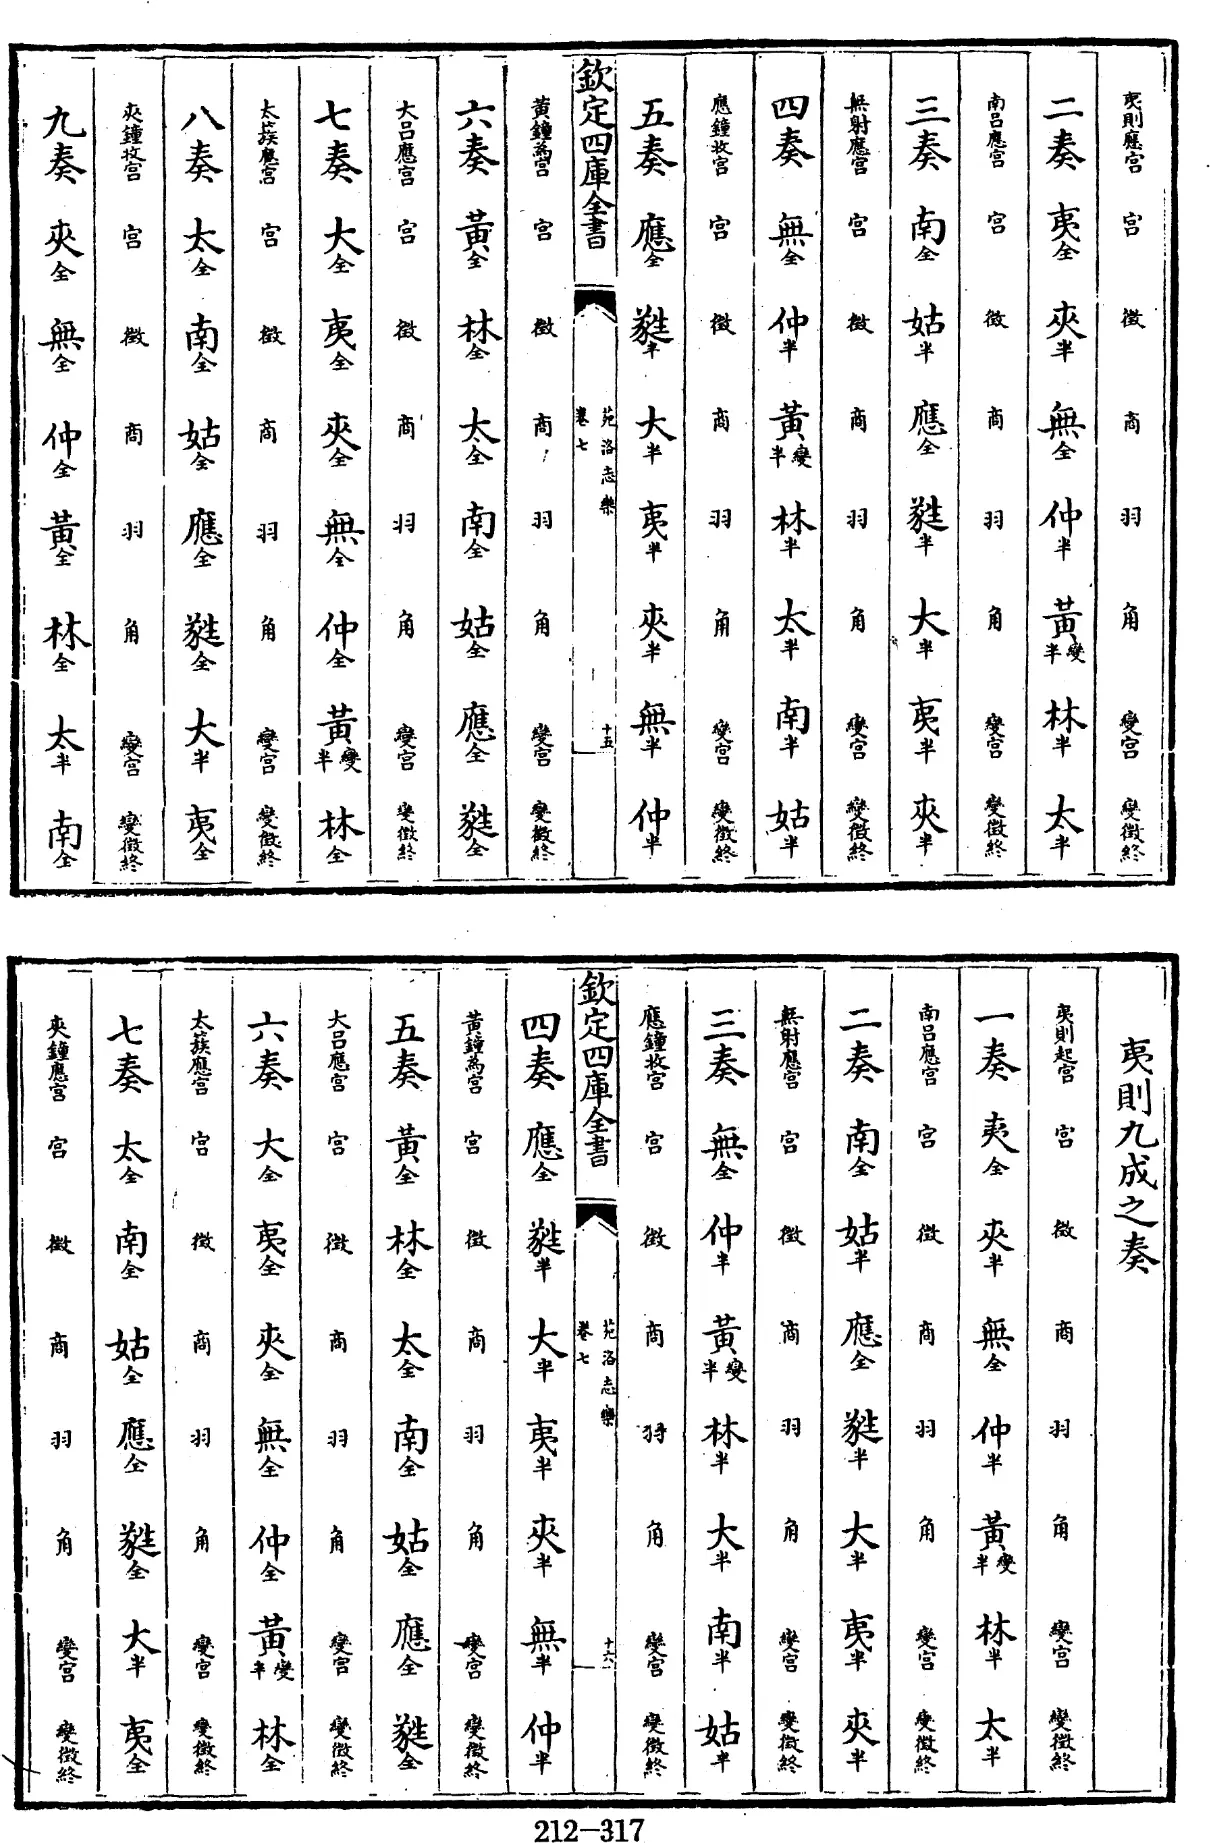 夷則應宮 宮 徵 商 羽 角 變宮 變徵終
二奏 夷全 夾半 無全 仲半 黃變半 林半 太半
南呂應宮 宮 徵 商 羽 角 變宮 變徵終
三奏 南全 姑半 應全 蕤半 大半 夷半 夾半
無射應宮 宮 徵 商 羽 角 變宮 變徵終
四奏 無全 仲半 黃變半 林半 太半 南半 姑半
應鐘收宮 宮 徵 商 羽 角 變宮 變徵終
五奏 應全 蕤半 大半 夷半 夾半 無半 仲半
欽定四庫全書 苑洛志樂 卷七 十五
黃鐘為宮 宮 徵 商 羽 角 變宮 變徵終
六奏 黃全 林全 太全 南全 姑全 應全 蕤全
大呂應宮 宮 徵 商 羽 角 變宮 變徵終
七奏 大全 夷全 夾全 無全 仲全 黃變半 林全
太簇應宮 宮 徵 商 羽 角 變宮 變徵終
八奏 太全 南全 姑全 應全 蕤全 大半 夷全
夾鐘收宮 宮 徵 商 羽 角 變宮 變徵終
九奏 夾全 無全 仲全 黃全 林全 太半 南全
夷則九成之奏
夷則起宮 宮 徵 商 羽 角 變宮 變徵終
一奏 夷全 夾半 無全 仲半 黃變半 林半 太半
南呂應宮 宮 徵 商 羽 角 變宮 變徵終
二奏 南全 姑半 應全 蕤半 大半 夷半 夾半
無射應宮 宮 徵 商 羽 角 變宮 變徵終
三奏 無全 仲半 黃變半 林半 大半 南半 姑半
應鐘收宮 宮 徵 商 羽 角 變宮 變徵終
四奏 應全 蕤半 大半 夷半 夾半 無半 仲半
欽定四庫全書 苑洛志樂 卷七 十六
黃鐘為宮 宮 徵 商 羽 角 變宮 變徵終
五奏 黃全 林全 太全 南全 姑全 應全 蕤全
大呂應宮 宮 徵 商 羽 角 變宮 變徵終
六奏 大全 夷全 夾全 無全 仲全 黃變半 林全
太簇應宮 宮 徵 商 羽 角 變宮 變徵終
七奏 太全 南全 姑全 應全 蕤全 大半 夷全
夾鐘應宮 宮 徵 商 羽 角 變宮 變徵終
212-317